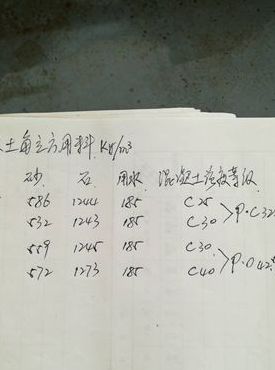 土每立方用料 Kg/m³
砂 石 用水 混凝土强度等级
586 1244 185 C25
532 1243 185 C30 >P·C32
559 1245 185 C30
572 1273 185 C40 >P·O42.5